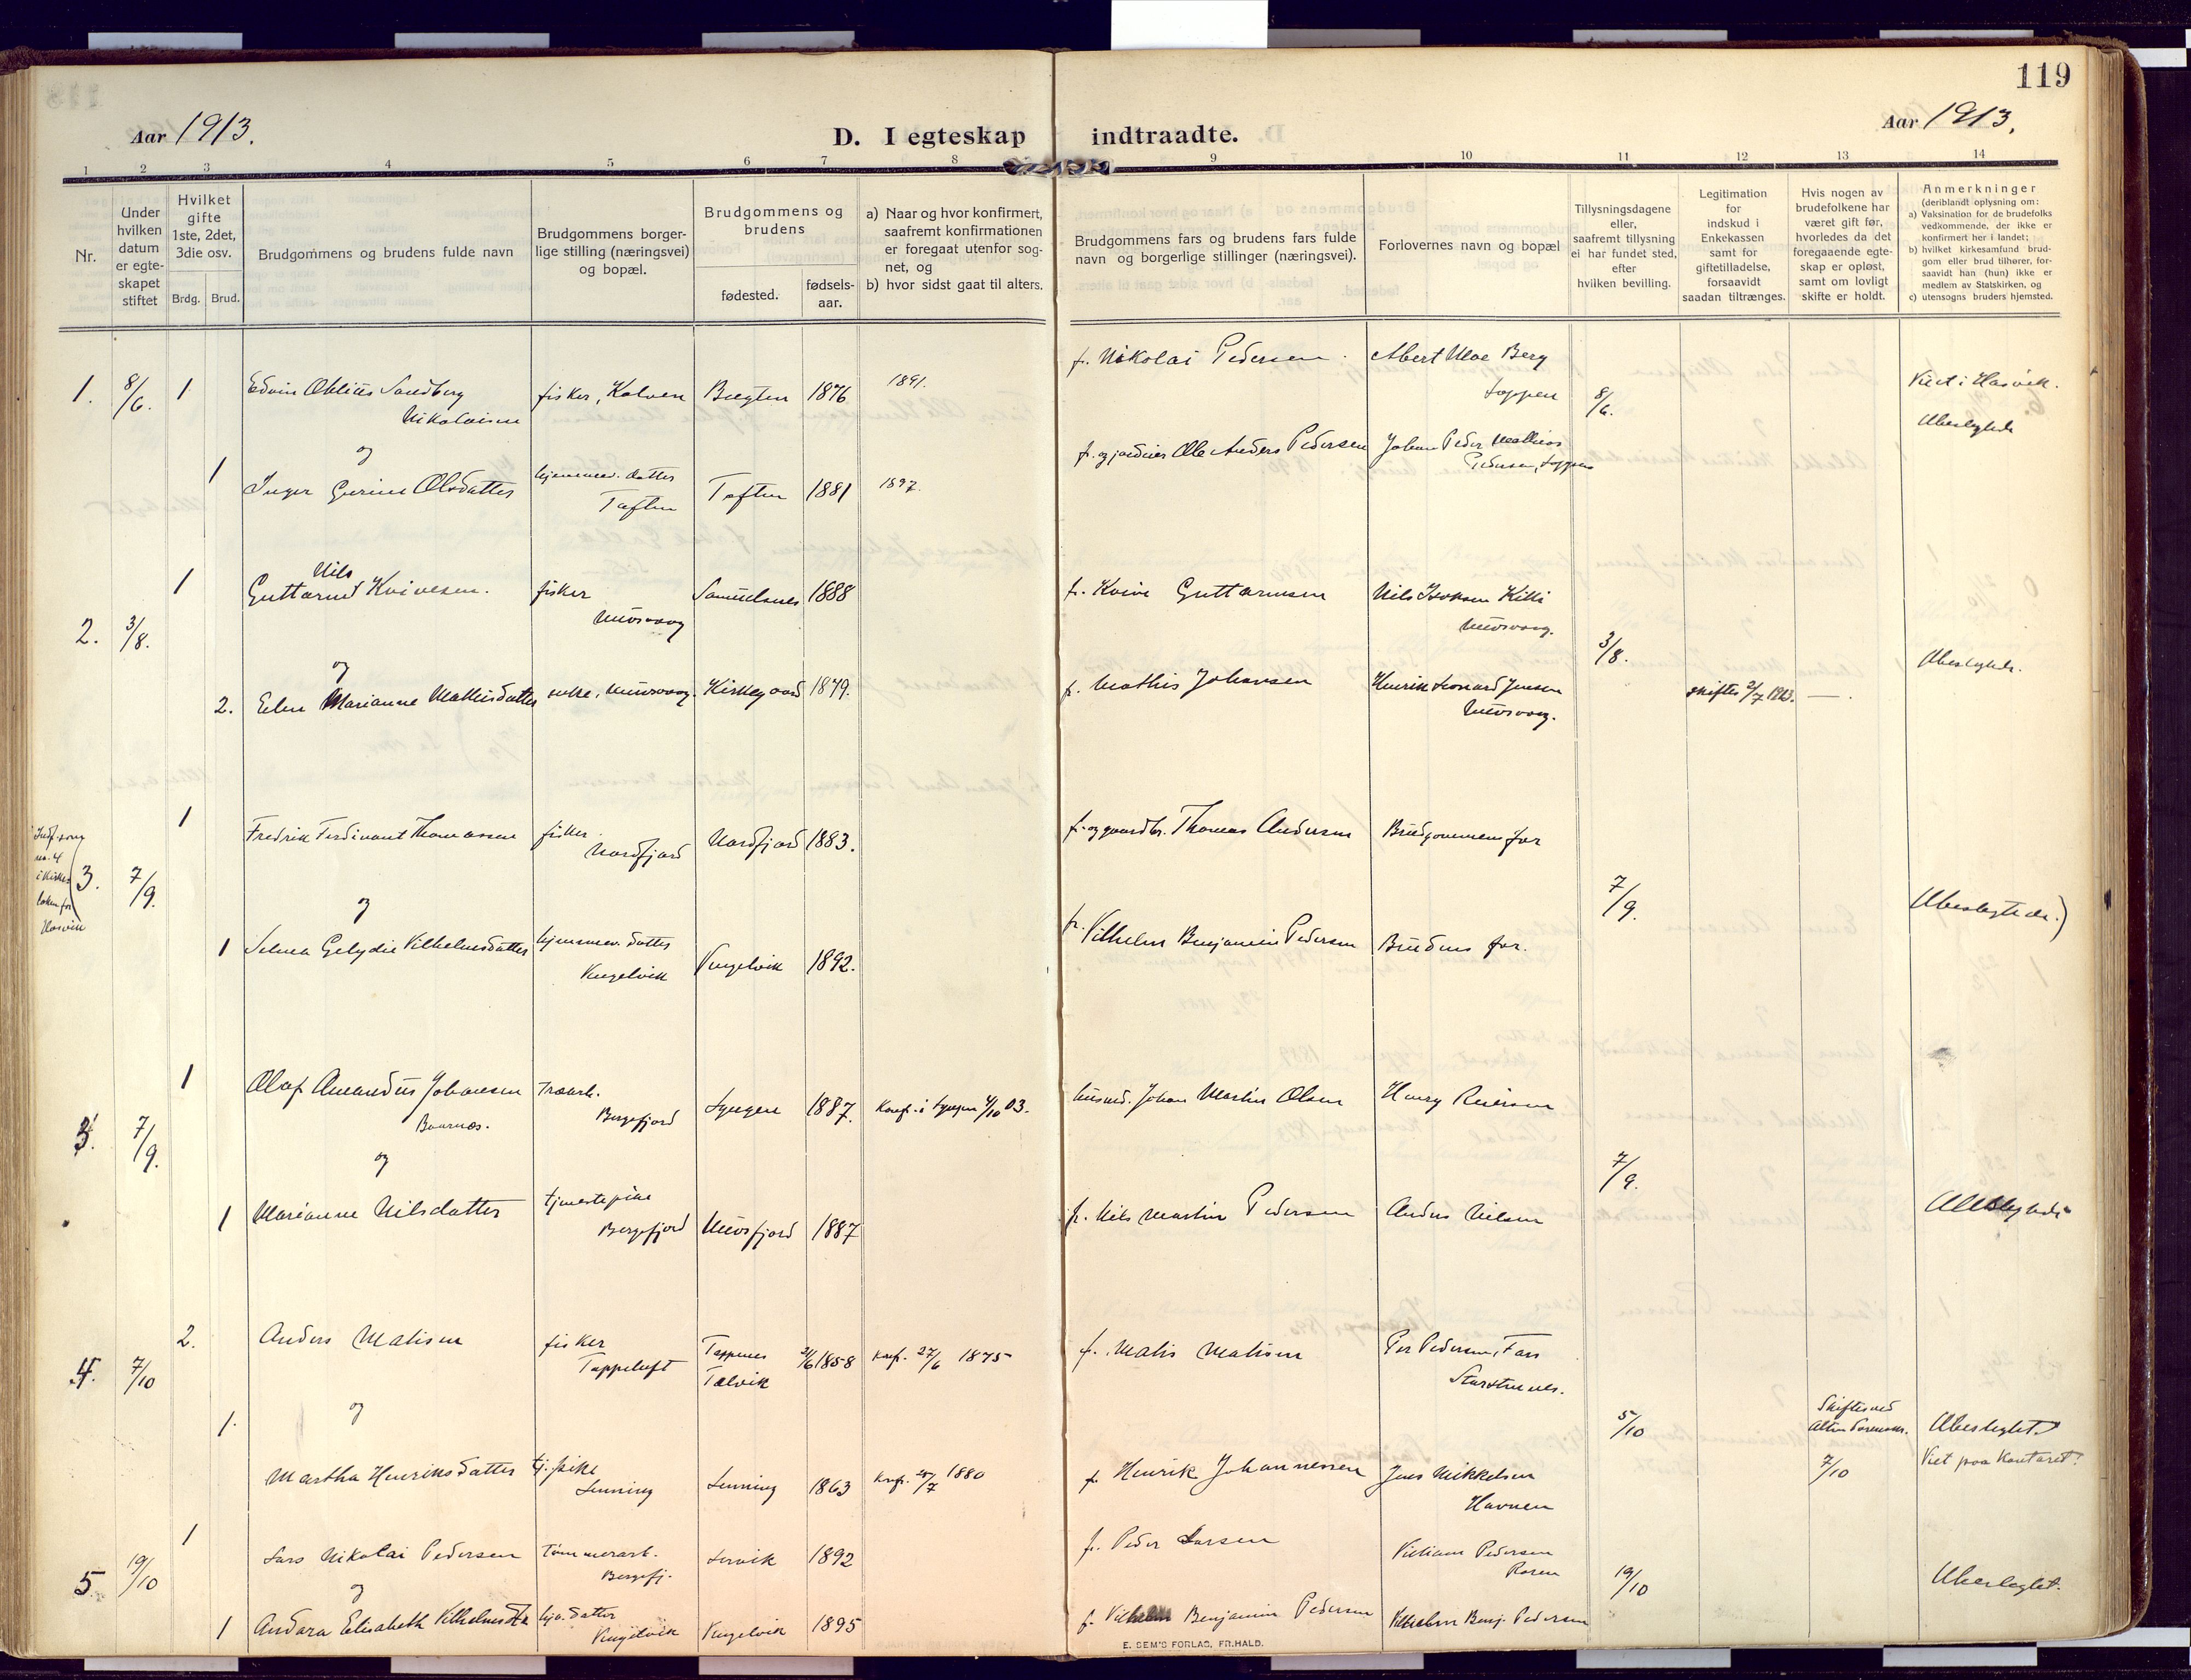 119
Aar 1913.
D. I egteskap indtraadte.
Aar 1913.
1 2 3 4 5 6 7 8 9 10 11 12 13 14
Nr.
Under hvilken datum er egteskapet stiftet
Hvilket gifte 1ste, 2det, 3die osv.
Brdg. Brud.
Brudgommens og brudens fulde navn
Brudgommens borgerlige stilling (næringsvei) og bopæl.
Brudgommens og brudens
fødested.
fødselsaar.
a) Naar og hvor konfirmert, saafremt konfirmationen er foregaat utenfor sognet, og
b) hvor sidst gaat til alters.
Brudgommens fars og brudens fars fulde navn og borgerlige stillinger (næringsvei).
Forlovernes navn og bopæl
Tillysningsdagene eller, saafremt tillysning ei har fundet sted, efter hvilken bevilling.
Legitimation for indskud i Enkekassen samt for giftetilladelse, forsaavidt saadan tiltrænges.
Hvis nogen av brudefolkene har været gift før, hvorledes da det foregaaende egteskap er opløst, samt om lovligt skifte er holdt.
Anmerkninger
(deriblandt oplysning om:
a) Vaksination for de brudefolks vedkommende, der ikke er konfirmert her i landet;
b) hvilket kirkesamfund brudgom eller brud tilhører, forsaavidt han (hun) ikke er medlem av Statskirken, og
c) utensogns bruders hjemsted.
1. 8/6. 1 Edvin Sandberg Nikolaisen fisker, Kalven 1876 1891. f. Nikolai Pedersen Berg Loppen 8/6. Viet i Hasvik.
Ubeslegtede
og
1 Inger Gurine Olsdatter hjemmev. datter Toften Toften 1881 1897. f. og jordeier Ole Anders Pedersen Johan Peder Mathias Pedersen, Loppen
2. 3/8. 1 Nils Guttorm Kvivesen. fisker Nuvsvaag Samuelsnes 1888 f. Kvive Guttormsen Nils Isaksen Kitti Nuvsvaag. 3/8. Ubeslegtede.
og
2. Elen Marianne Mathisdatter enke, Nuvsvaag. Kirkegaard 1879. f. Mathis Johansen Henrik Leonard Jensen Nuvsvaag. skifte 2/7 1913. —
Indf. som no. 4 i kirkeboken for Hasvik
3. 7/9. 1 Fredrik Ferdinant Thomassen fisker Nordfjord Nordfjord 1883. f. og gaardbr. Thomas Andersen Brudgommens far 7/9. Ubeslegtede.)
og
1 Selma Vilhelmsdatter hjemmev. datter 1892. f. Vilhelm Benjamin Pedersen Brudens far.
3. 7/9. 1 Olaf Amandus Johansen Bergfjord Lyngen 1887. Konf. i Lyngen 4/10 03. husmd. Johan Martin Olsen Henry Reiersen 7/9. Ubeslegtede
og
1 Marianne Nilsdatter tjenestepike Bergsfjord Nuvsfjord 1887 f. Nils Martin Pedersen Anders Nilsen
4. 7/10 2. Anders Matisen fisker Tappeluft Tappenes Talvik 1858 Konf. 27/6 1875 f. Matis Matisen Per Pedersen, 5/10 Ubeslegtet.
og
1. Martha Henriksdatter tj. pike Lerning Lerning 1863 Konf. 25/7 1880 f. Henrik Johannessen Jens Mikkelsen Havnen 7/10 Viet paa Kontoret!
5 19/10 1 Lars Nikolai Pedersen Tømmerarb. Bergsfj. Lervik 1892 f. Peder Larsen Pedersen 19/10 Ubeslegtet.
og
1 Andara Elisabeth Vilhelmsdtr hjv. datter 1895 f. Vilhelm Benjamin Pedersen Vilhelm Benj. Pedersen
E. SEM'S FORLAG, FR.HALD.